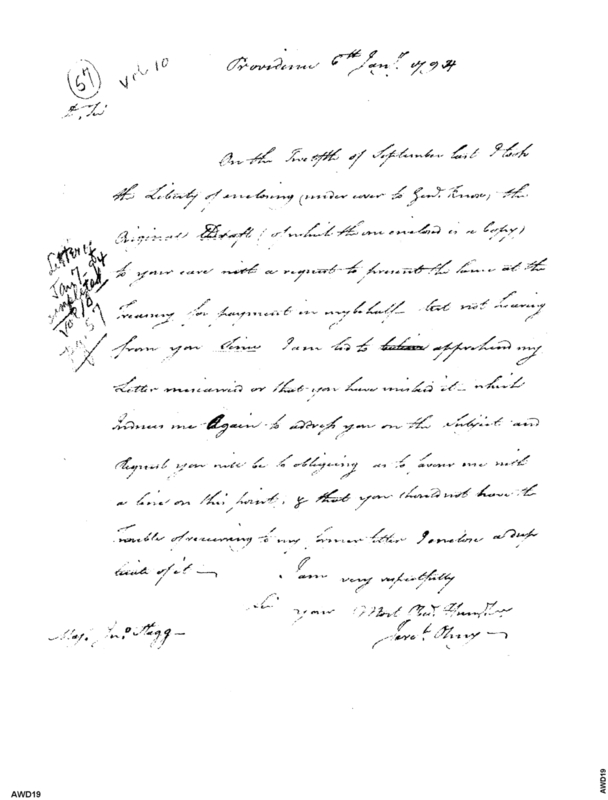 57
Vol 10
Providence 6th Jany. 1794
Sir
On the Twelfth of September last I took
the Liberty of enclosing (under cover to Genl. Knox) the
Original Draft (of which the one enclosed is a Copy)
to your care with a request to present the same at the
Treasury for payment in my behalf but not hearing
from you Since I am led to apprehend my
Letter miscarried or that you have mislaid it - which
Induces me Again to address you on the Subject and
Request you will be so obliging as to favour me with
a line on this point, & that you should not have the
Trouble of recurring to my former letter I enclose a dup
licate of it -
I am very respectfully
Sir your Most Obed. Humble
Jere h. Olney
Maj. Jno. Stagg -
Letter of
Jan 7
Vol 10
Pg. 57
AWD19
AWD19